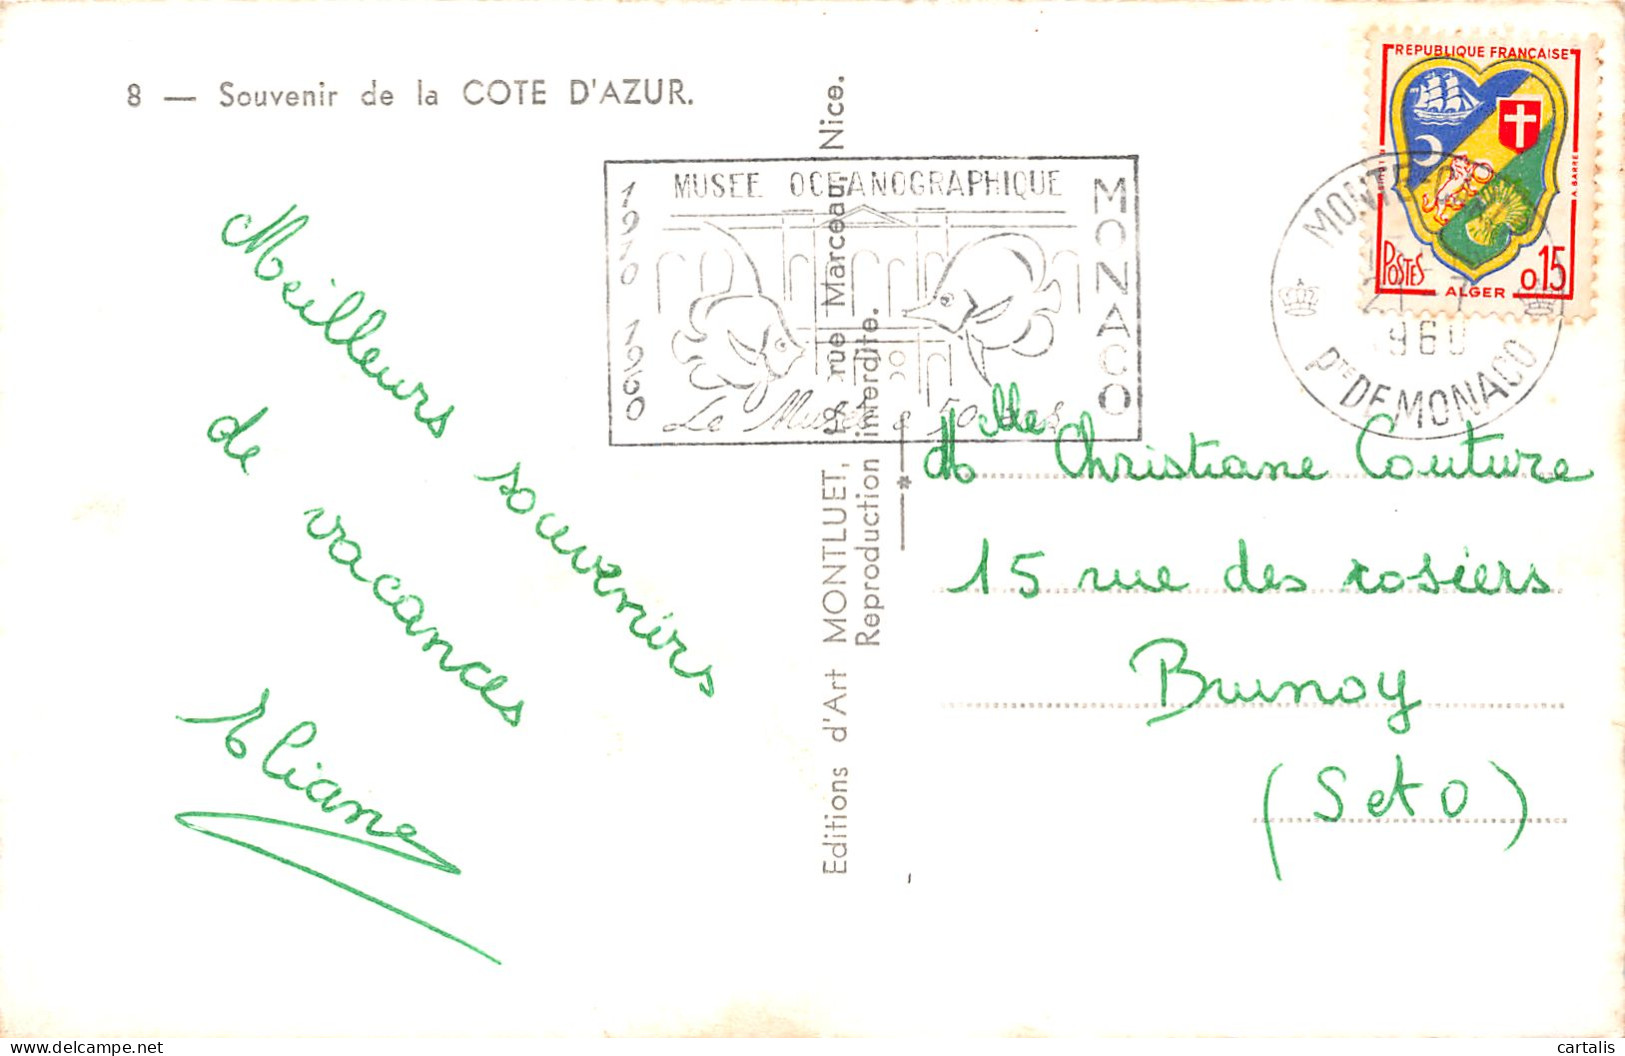 8 — Souvenir de la COTE D'AZUR.
Meilleurs souvenirs
de vacances
Eliane
Editions d'Art MONTLUET, rue Marceau, Nice.
Reproduction interdite.
1910 1960
MUSEE OCEANOGRAPHIQUE
MONACO
Le Musée a 50 ans
REPUBLIQUE FRANÇAISE
POSTES
ALGER
0,15
MONTE-
1960
Pté DE MONACO
Melle Christiane Couture
15 rue des rosiers
Brunoy
(S et O)
delcampe.net
cartalis